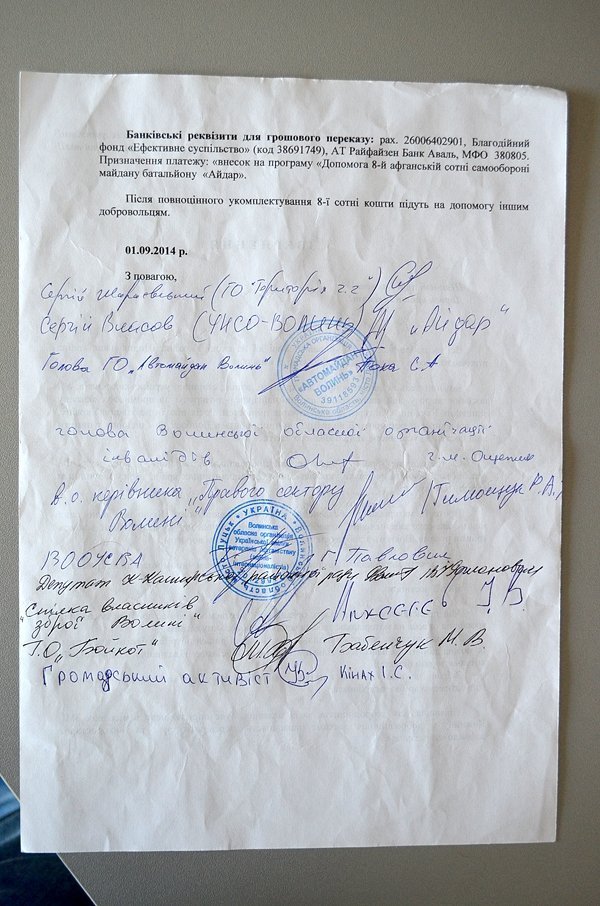 Банківські реквізити для грошового переказу: рах. 26006402901, Благодійний
фонд «Ефективне суспільство» (код 38691749), АТ Райфайзен Банк Аваль, МФО 380805.
Призначення платежу: «внесок на програму «Допомога 8-й афганській сотні самообороні
майдану батальйону «Айдар».
Після повноцінного укомплектування 8-ї сотні кошти підуть на допомогу іншим
добровольцям.
01.09.2014 р.
З повагою,
Сергій (ГО "Територія
Сергій Власов (УНСО-Волинь) "Айдар"
Голова ГО "Автомайдан Волинь" С.А
«АВТОМАЙДАН
ВОЛИНЬ»
39118993
голова Волинської обласної організації
інвалідів
в.о. керівника "Правого сектору
Волині" (Тимощук Р.А.)
УКРАЇНА
Волинська
обласна організація
Української спілки
ветеранів Афганістану
ВООУСВА Г. Павлович
Депутат
"Спілка власників
зброї Волині"
Г.О "Бойкот" Бабенчук М.В.
Громадський активіст Кінах І.С.